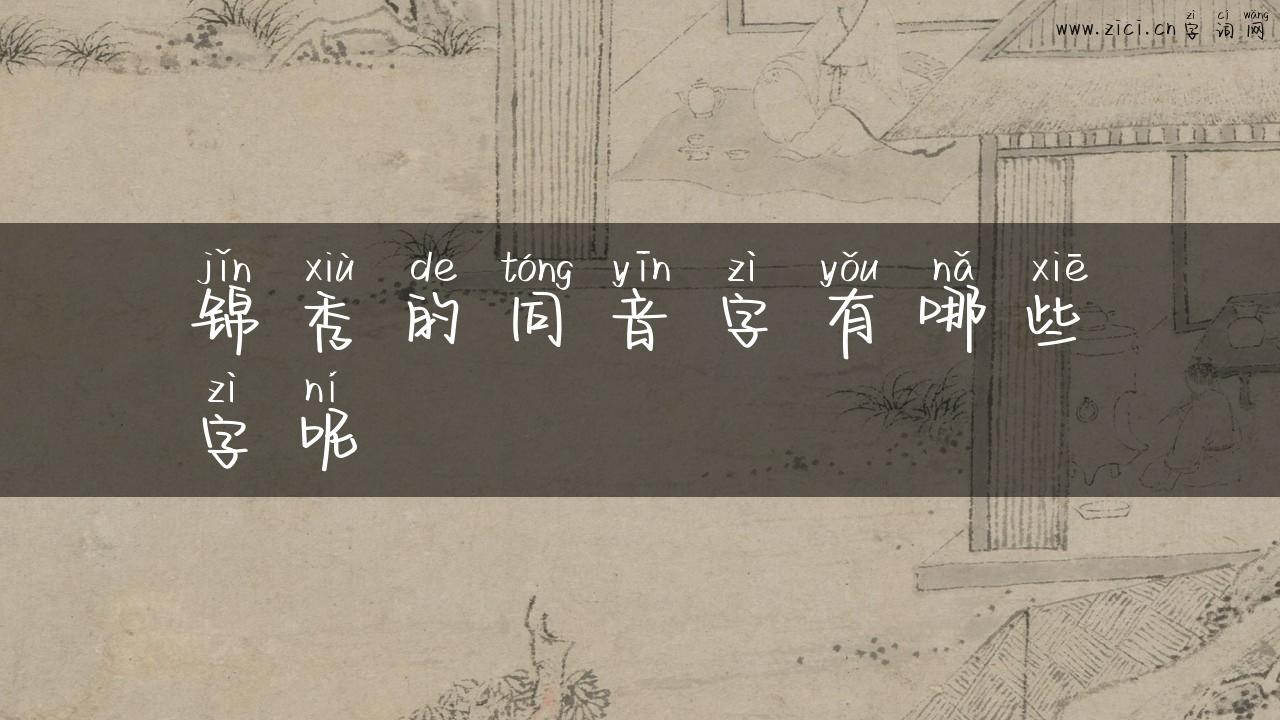 zì cí wǎng
www.zici.cn 字词网
jǐn xiù de tóng yīn zì yǒu nǎ xiē
锦秀的同音字有哪些
zì ní
字呢